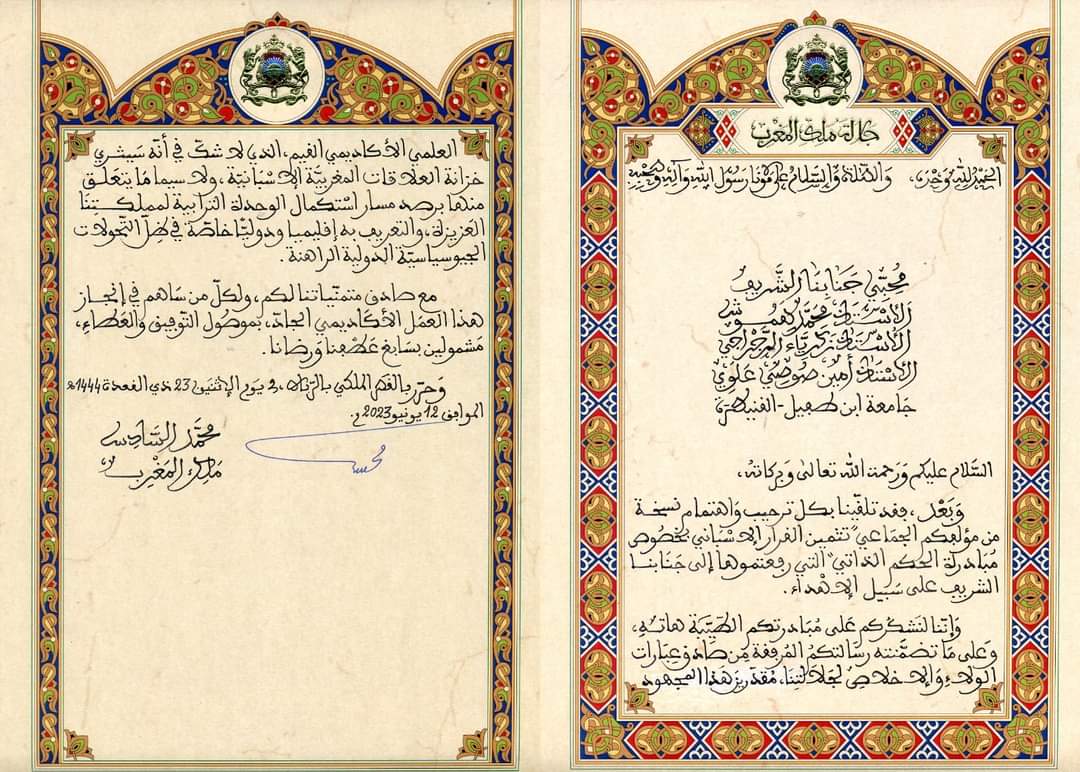 جلالة ملك المغرب
الحمد لله وحده، والصلاة والسلام على مولانا رسول الله وآله وصحبه
محبي جنابنا الشريف
الأستاذ محمد بهموش
الأستاذ زكرياء الرجراجي
الأستاذ أمين صوصي علوي
جامعة ابن طفيل - القنيطرة
السلام عليكم ورحمة الله تعالى وبركاته،
وبعد، فقد تلقينا بكل ترحيب واهتمام نسخة
من مؤلفكم الجماعي "تثمين القرار الإسباني بخصوص
مبادرة الحكم الذاتي" التي رفعتموها إلى جنابنا
الشريف على سبيل الإهداء.
وإننا لنشكركم على مبادرتكم الطيبة هاته،
وعلى ما تضمنته رسالتكم المرفقة من صادق عبارات
الولاء والإخلاص لجلالتنا، مقدرين هذا المجهود
العلمي الأكاديمي القيم، الذي لا شك في أنه سيثري
خزانة العلاقات المغربية الإسبانية، ولا سيما ما يتعلق
منها برصد مسار استكمال الوحدة الترابية لمملكتنا
العزيزة، والتعريف به إقليميا ودوليا خاصة في ظل التحولات
الجيوسياسية الدولية الراهنة.
مع صادق متمنياتنا لكم، ولكل من ساهم في إنجاز
هذا العمل الأكاديمي الجاد، بموصول التوفيق والعطاء،
مشمولين بسابغ عطفنا ورضانا.
وحرر بالقصر الملكي بالرباط، في يوم الإثنين 23 ذي القعدة 1444هـ
الموافق 12 يونيو 2023م.
محمد السادس
ملك المغرب